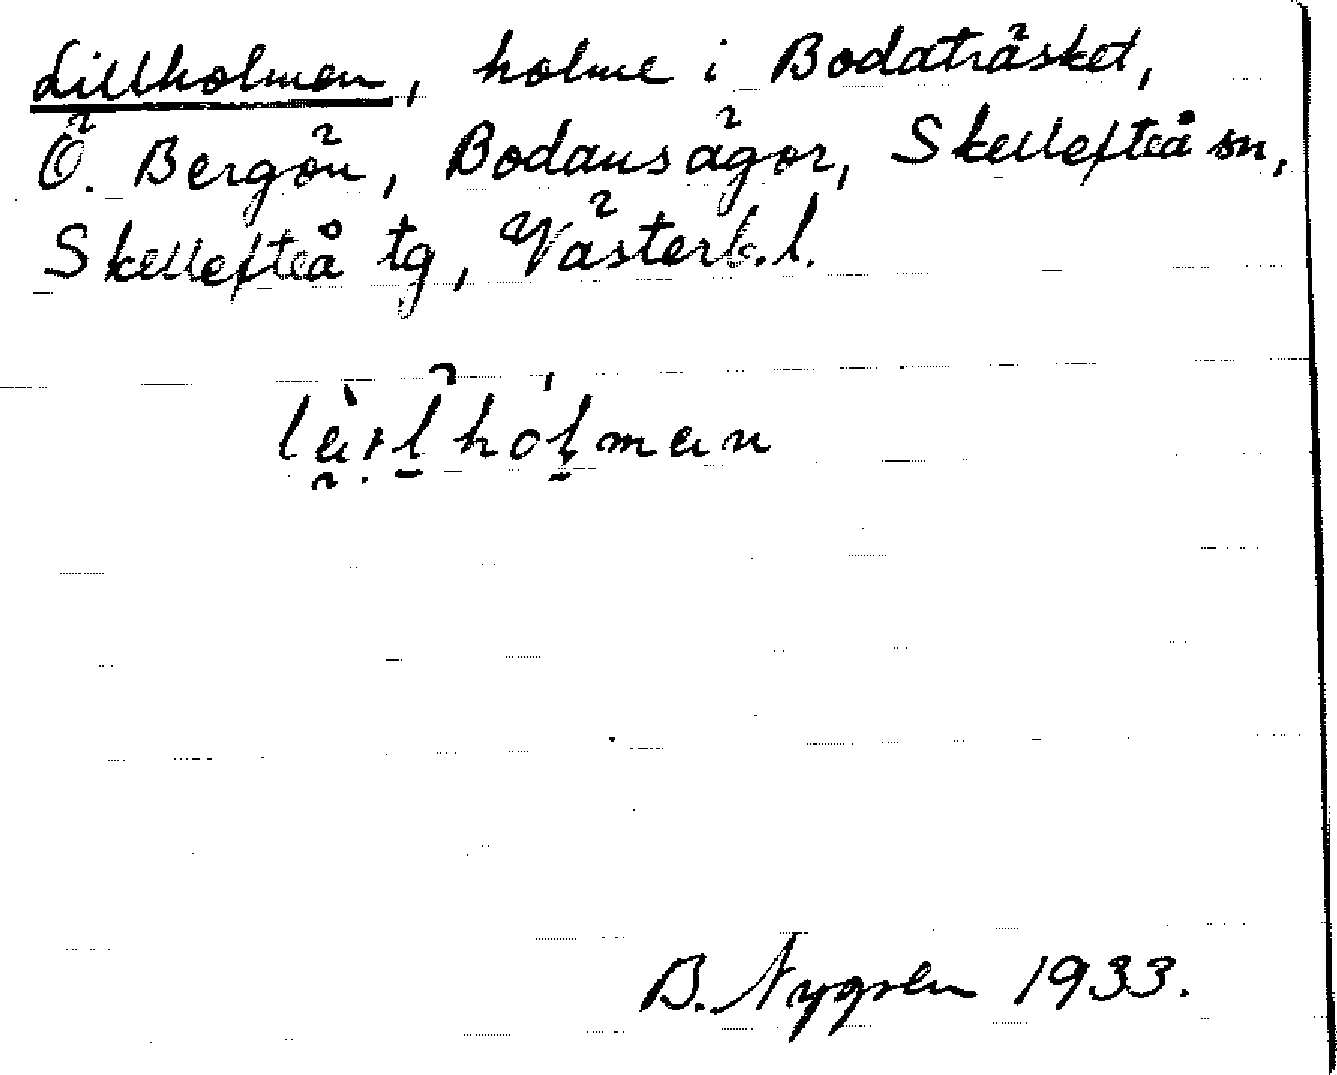 Lillholmen, holme i Bodaträsket,
Ö. Bergön, Bodans ägor, Skellefteå sn,
Skellefteå tg, Västerb. l.
B. Nygren 1933.